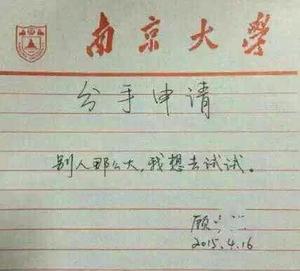 南京大學
分手申请
别人那么大,我想去试试。
顾
2015.4.16